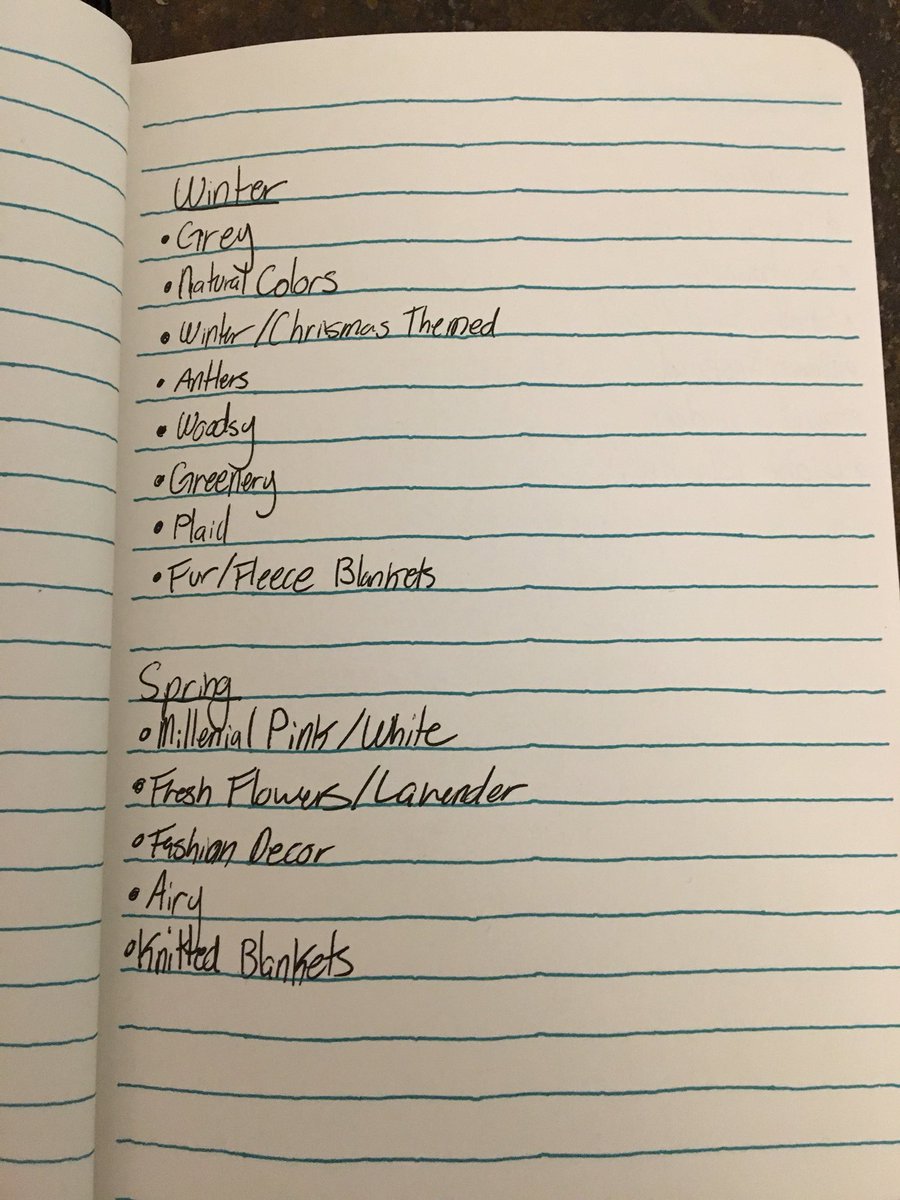 Winter
• Grey
• Natural Colors
• Winter/Chrismas Themed
• Antlers
• Woodsy
• Greenery
• Plaid
• Fur/Fleece Blankets
Spring
• Millenial Pink/White
• Fresh Flowers/Lavender
• Fashion Decor
• Airy
• Knitted Blankets